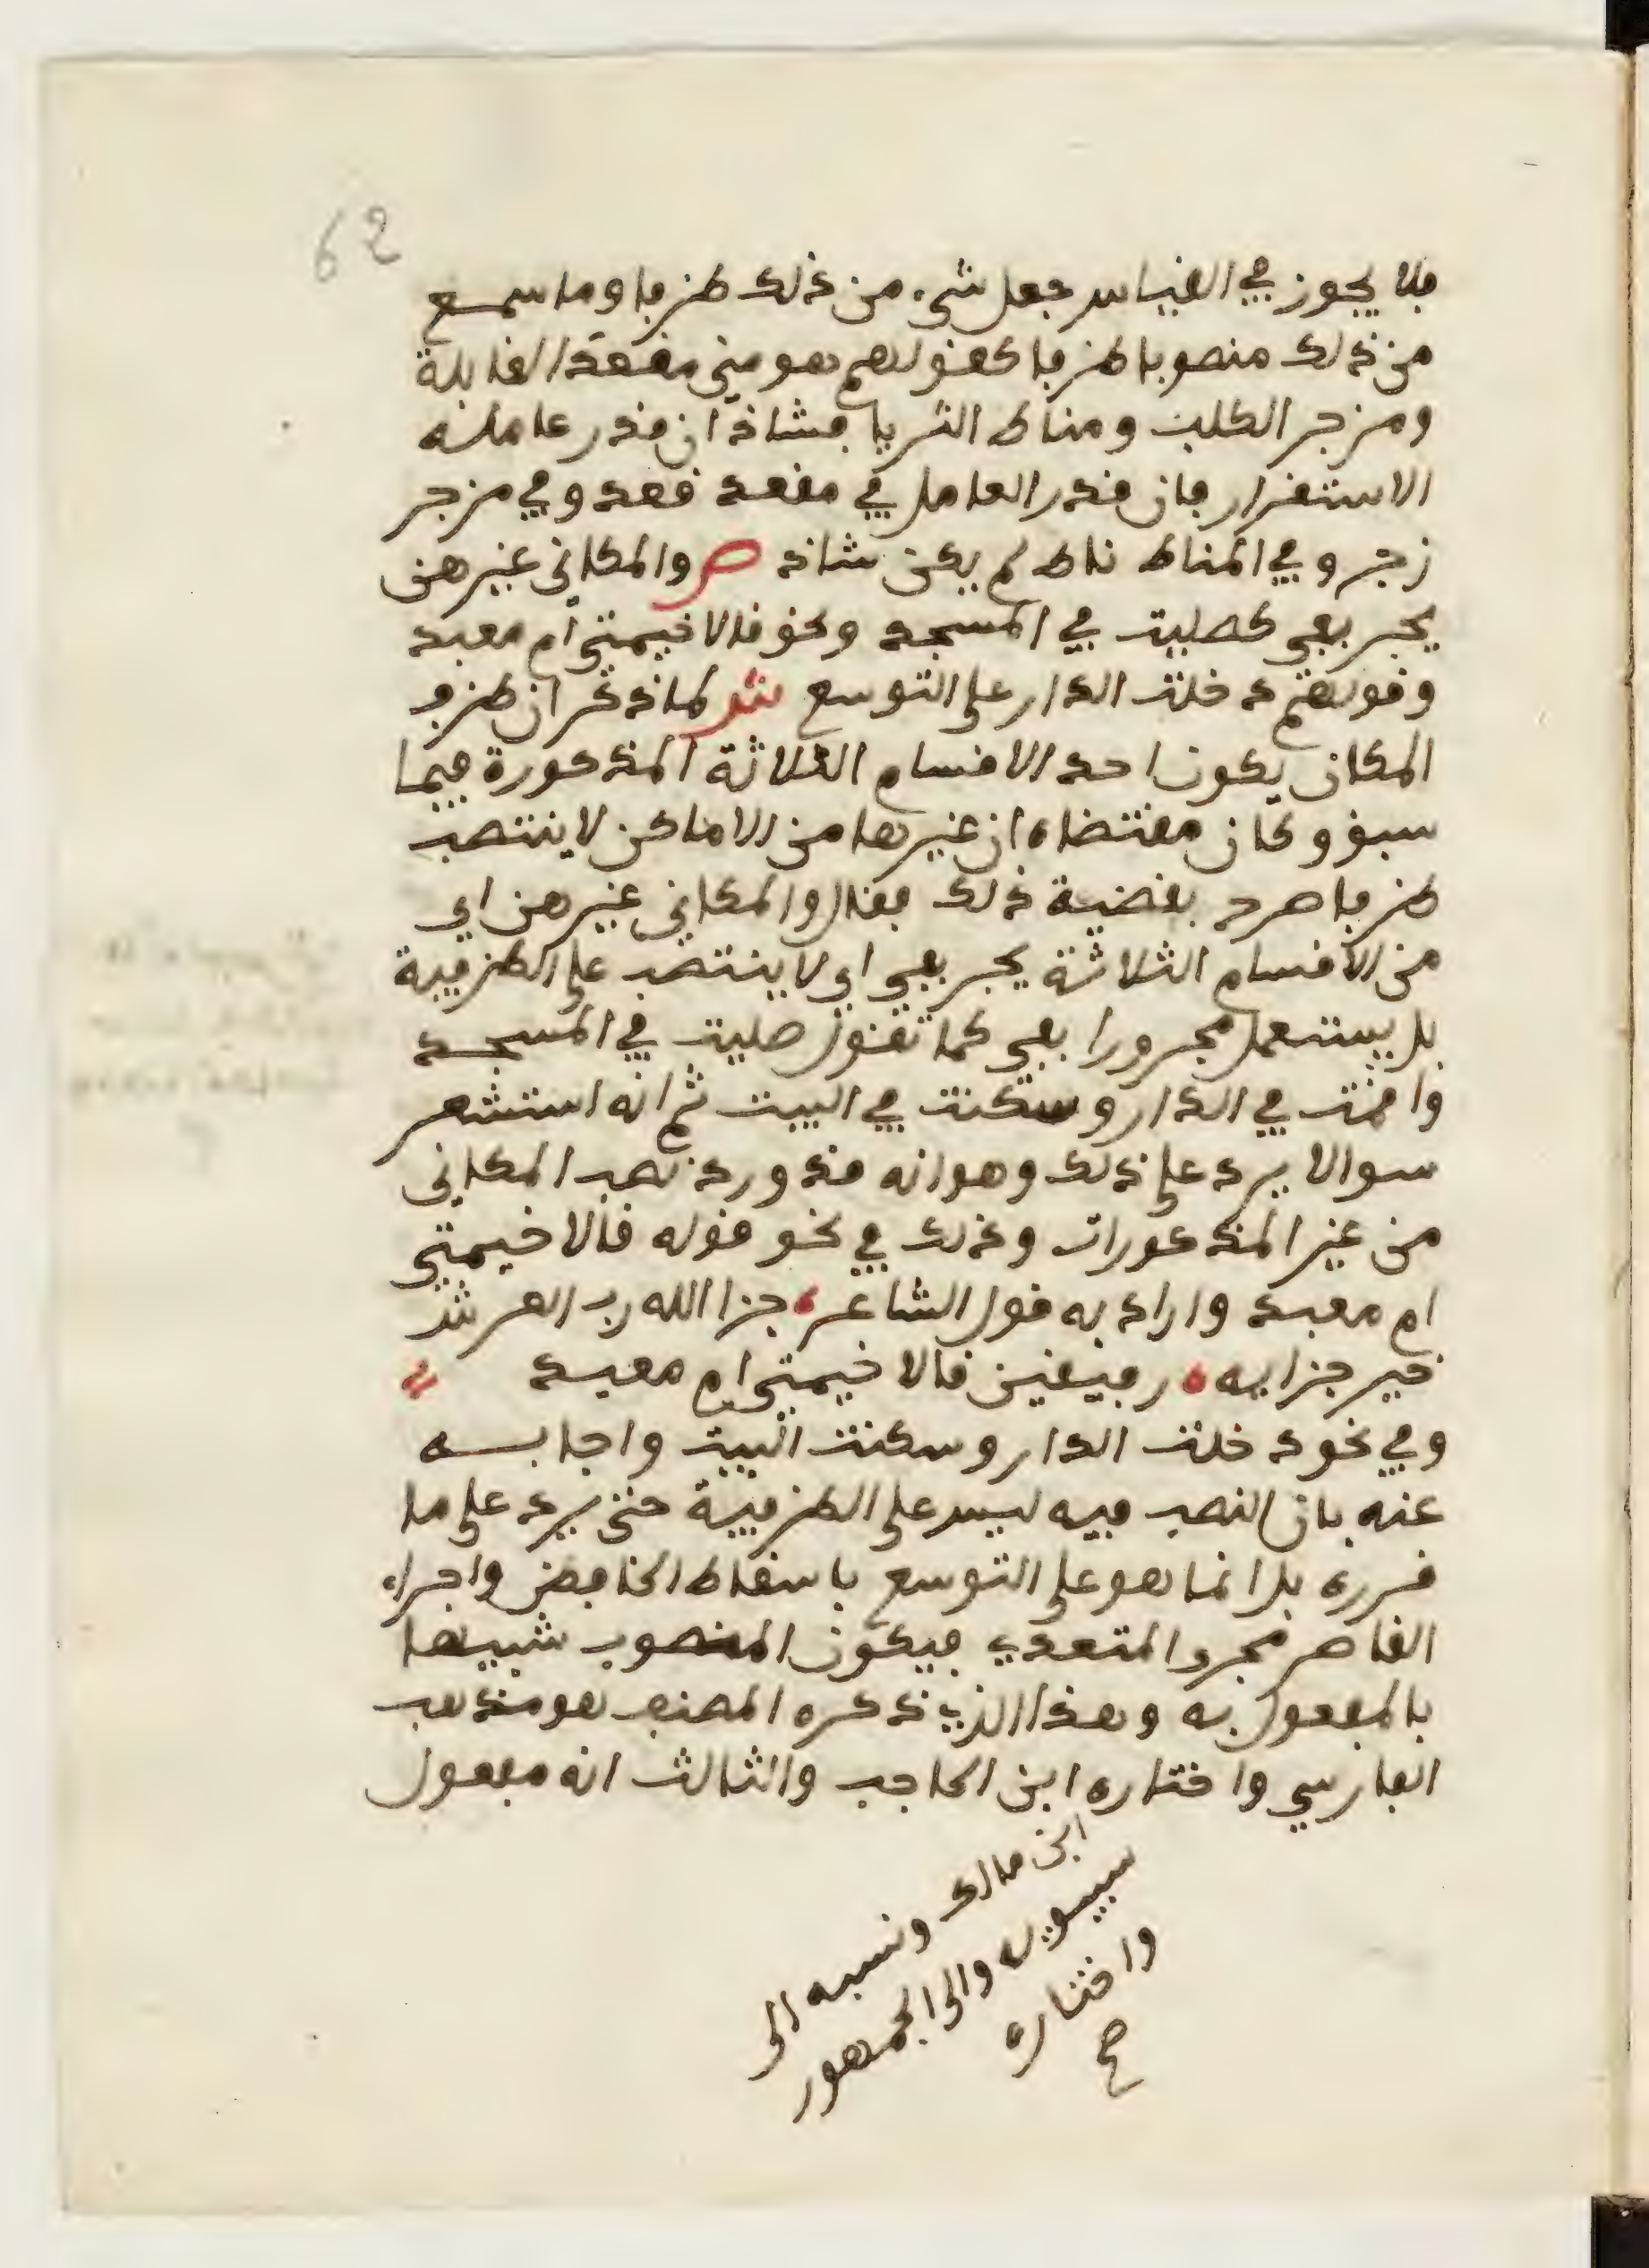 62
فلا يجوز في القياس جعل شيء من ذلك ظرفا وما سمع
من ذلك منصوبا ظرفا كقولهم هو مني مقعد القابلة
ومزجر الكلب ومناط الثريا فشاذ ان قدر عامله
الاستقرار فان قدر العامل في مقعد قعد وفي مزجر
زجر وفي المناط ناط لم يكن شاذ ص والمكاني غيرهن
يجر بفي كصليت في المسجد ونحو قالا خيمتي ام معبد
وقولهم دخلت الدار على التوسع ش لما ذكر ان ظرف
المكان يكون احد الاقسام الثلاثة المذكورة فيما
سبق وكان مقتضاه ان غيرها من الاماكن لا ينتصب
ظرفا صرح بقضية ذلك فقال والمكاني غيرهن اي
من الاقسام الثلاثة يجر بفي اي لا ينتصب على الظرفية
بل يستعمل مجرورا بفي كما تقول صليت في المسجد
واقمت في الدار وسكنت في البيت ثم انه استشعر
سوالا يرد على ذلك وهو انه قد ورد نصب المكاني
من غير المذكورات وذلك في نحو قوله قالا خيمتي
ام معبد واراد به قول الشاعر جزا الله رب العرش
خير جزايه رفيقين قالا خيمتي ام معبد
وفي نحو دخلت الدار وسكنت البيت واجاب
عنه بان النصب فيه ليس على الظرفية حتى يرد على ما
قرره بل انما هو على التوسع باسقاط الخافض واجراء
القاصر مجرا المتعدي فيكون المنصوب شبيها
بالمفعول به وهذا الذي ذكره المصنف هو مذهب
الفارسي واختاره ابن الحاجب والثالث انه مفعول
ابن مالك ونسبه الى
سيبويه والى الجمهور
واختاره
صح